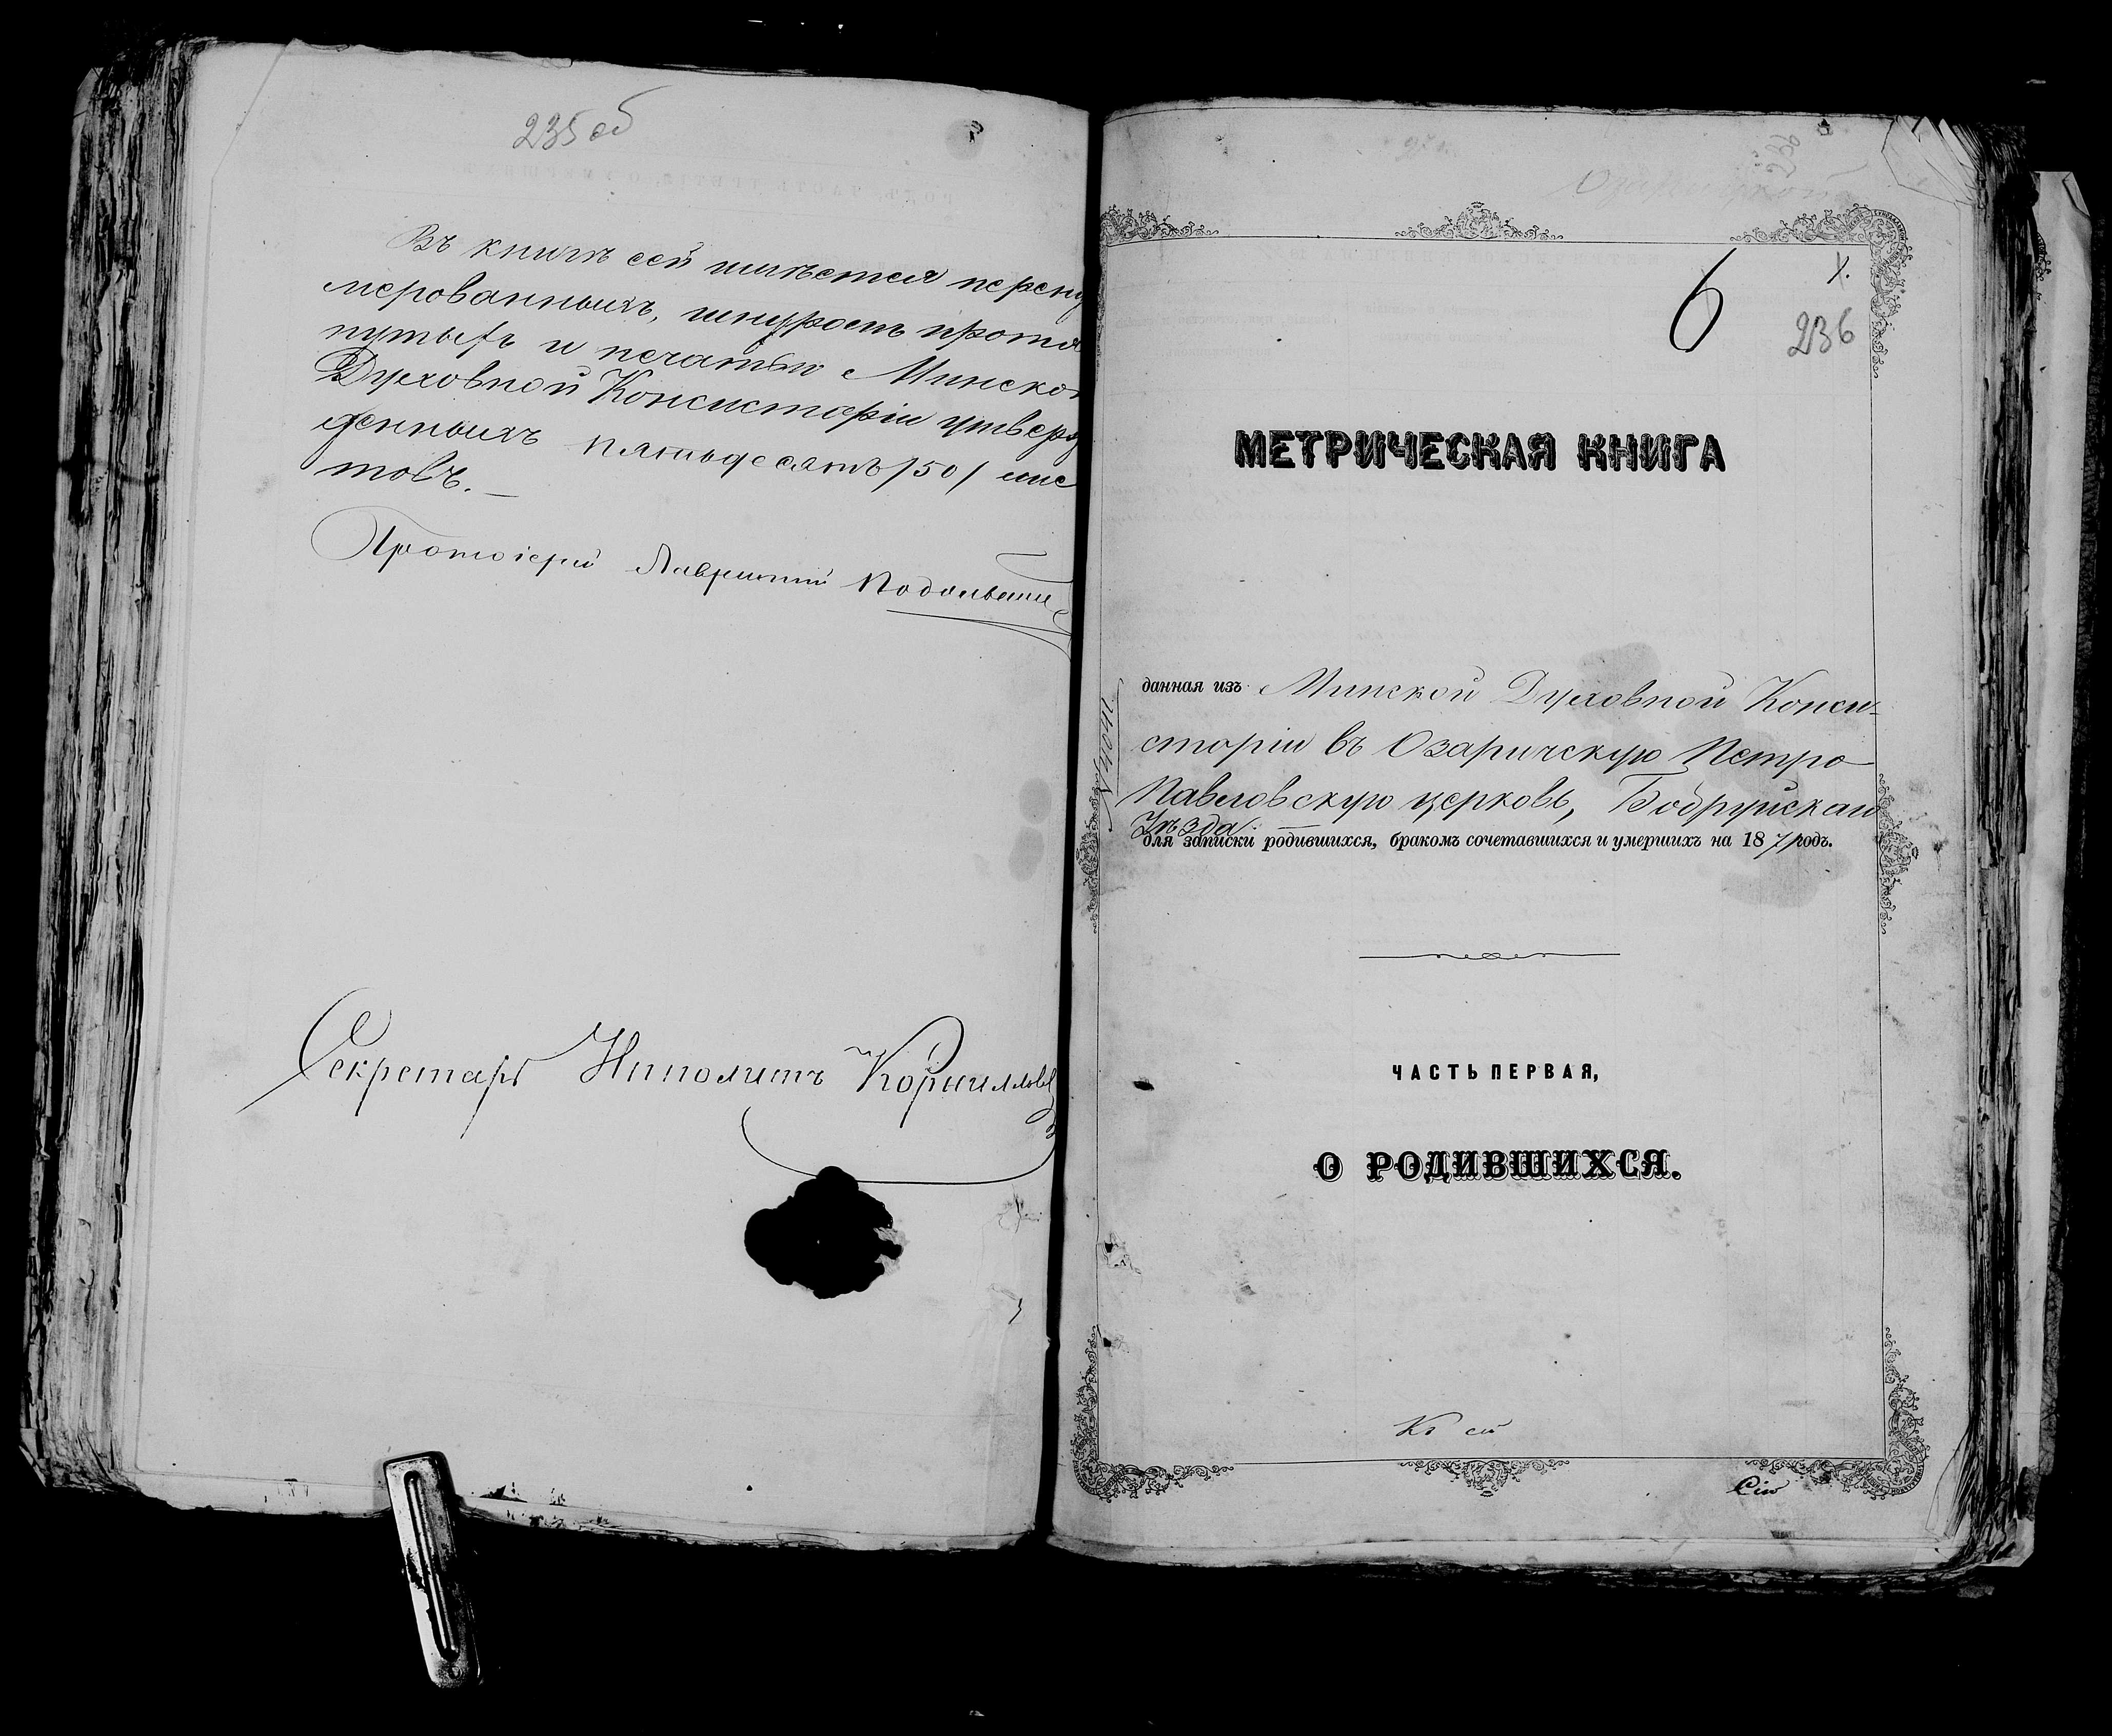 235 об
Въ книгѣ сей имѣется перену
мерованныхъ, шнуромъ протя
нутыхъ и печатью Минской
Духовной Консисторіи утверж
денныхъ пятьдесятъ /50/ лис
товъ.
Протоіерей Лаврентій
Секретарь Ипполитъ Корнилловъ
236
6
1.
236
МЕТРИЧЕСКАЯ КНИГА
данная изъ Минской Духовной Конси-
сторіи въ Озаричскую Петро
Павловскую церковь, Бобруйскаго
Уѣзда
для записки родившихся, бракомъ сочетавшихся и умершихъ на 187 годъ.
ЧАСТЬ ПЕРВАЯ,
О РОДИВШИХСЯ.
Къ сей
Сію